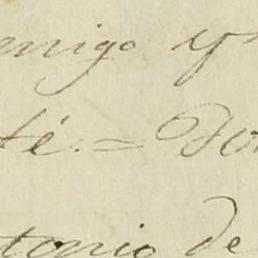 emigo y
té. = Do
tonio de